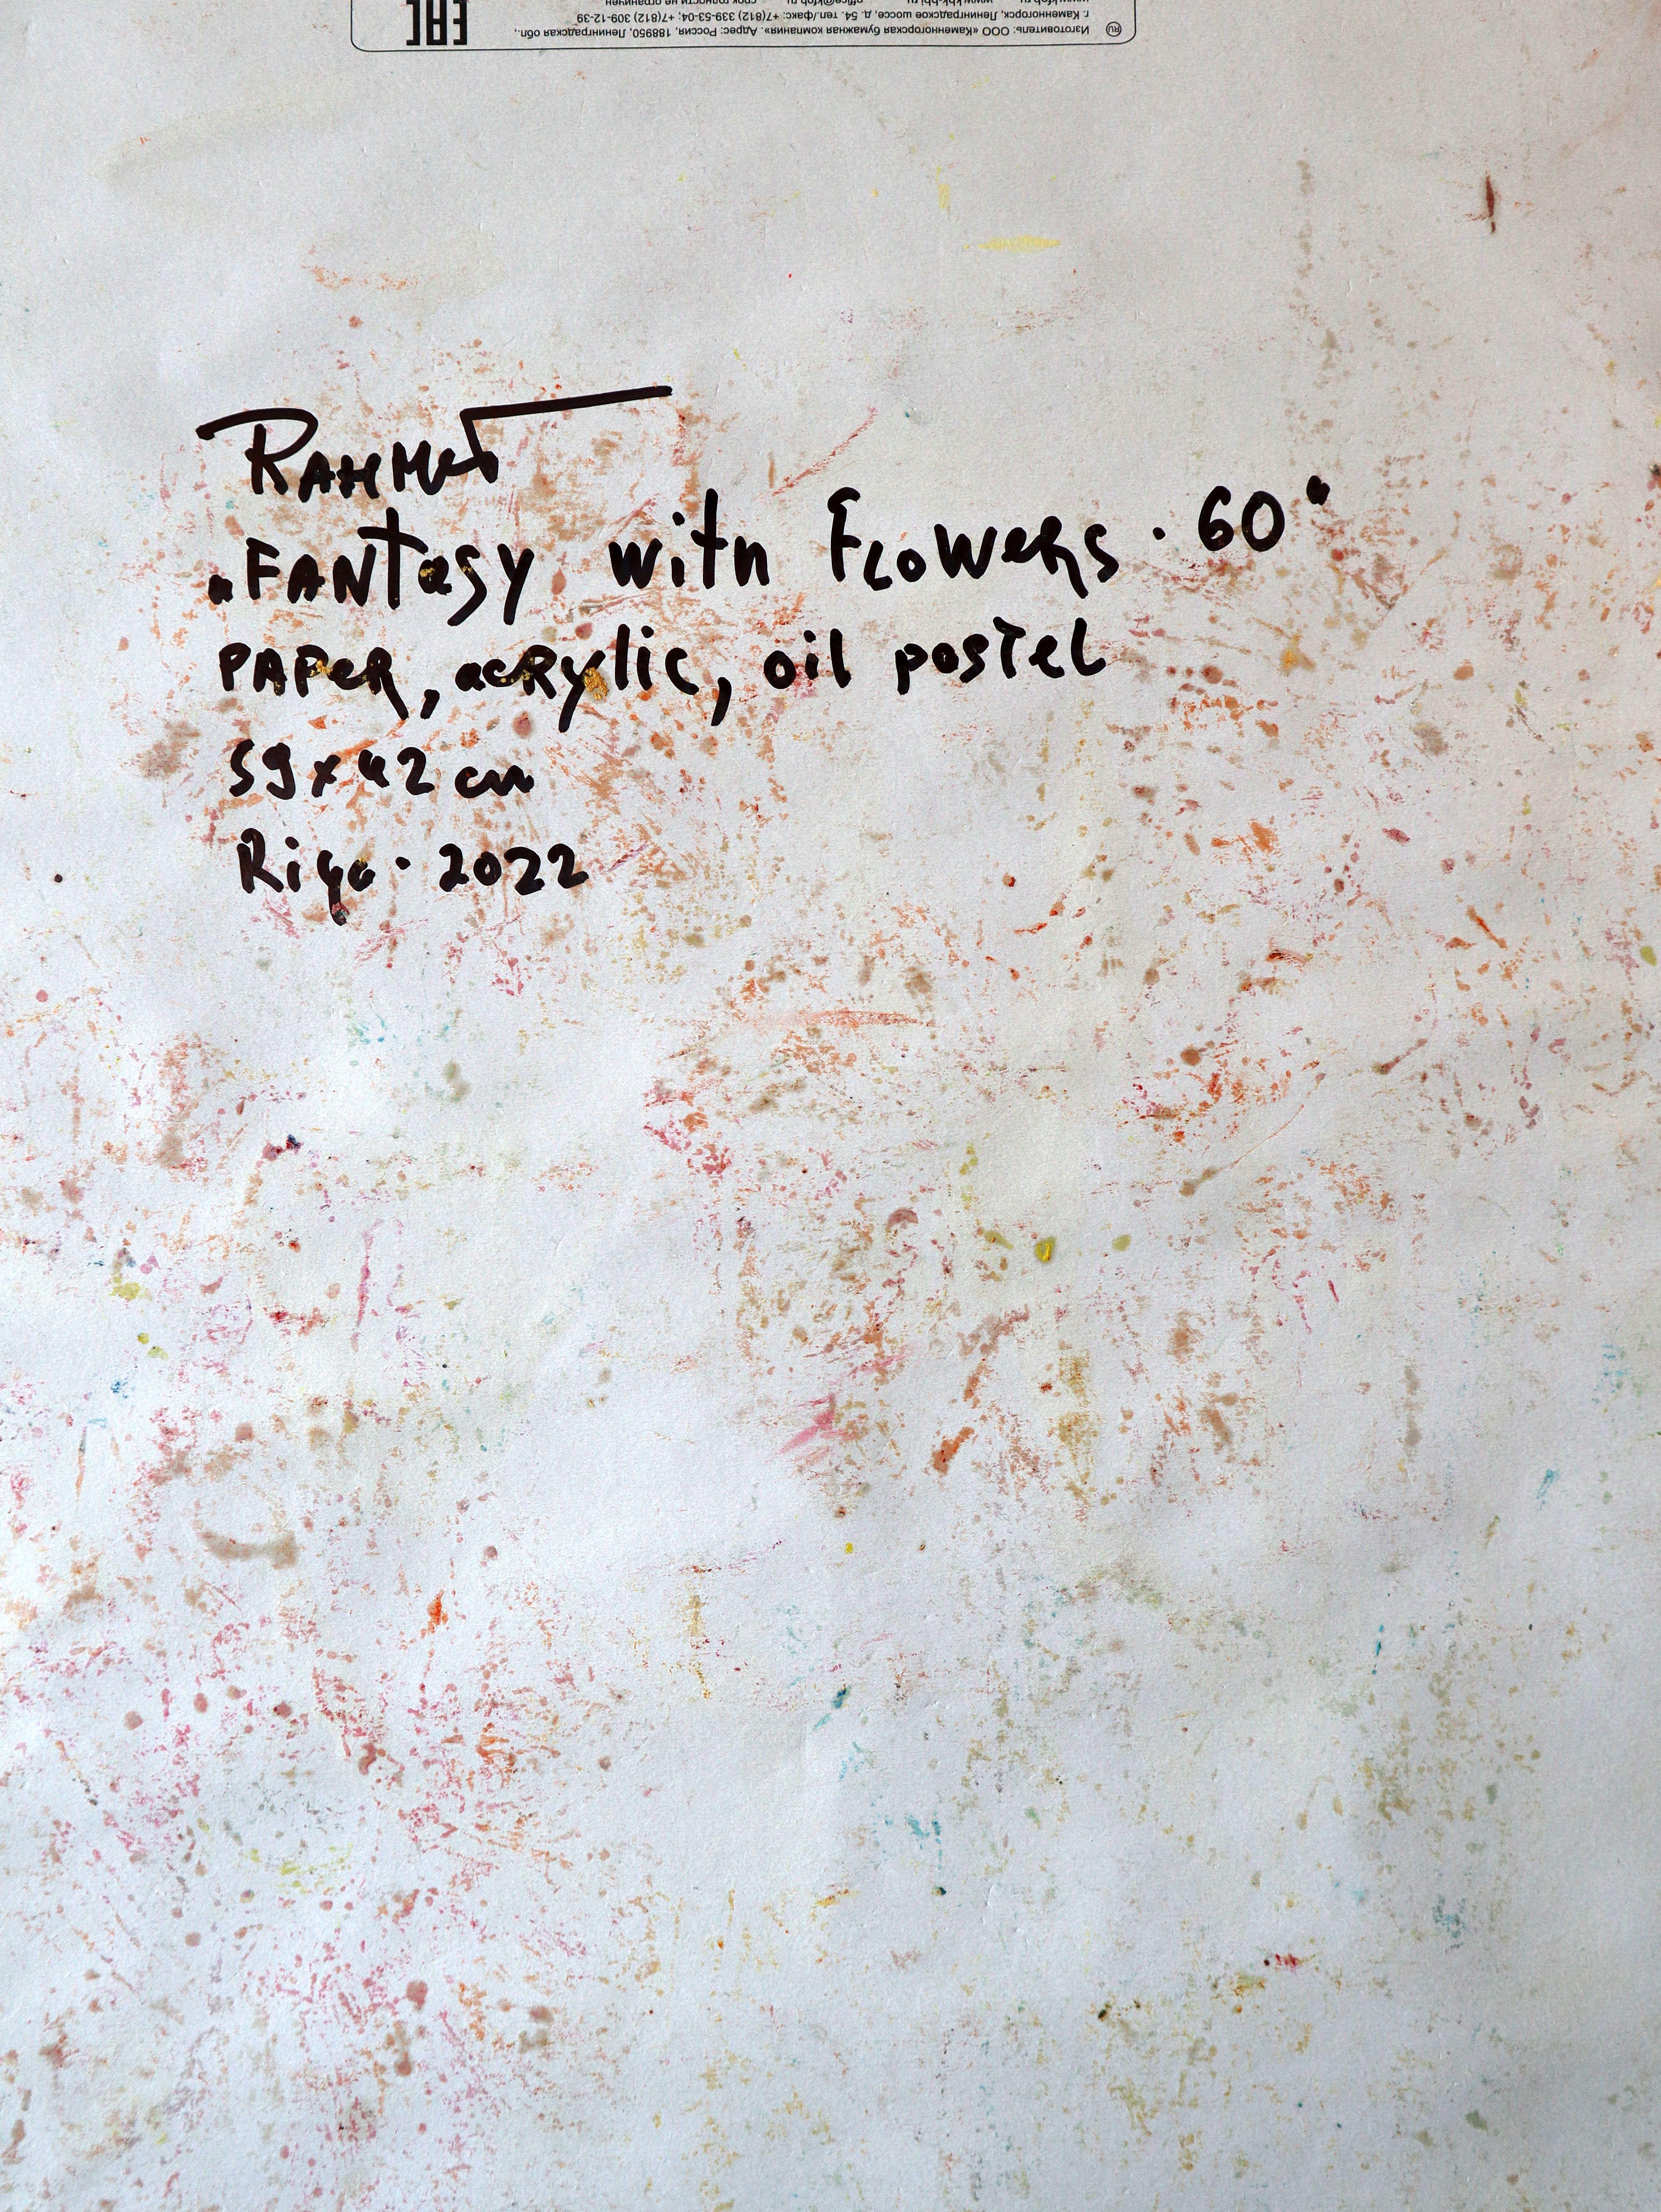 www.kfob.ru www.kbk-bbi.ru office@kfob.ru срок годности не ограничен
г. Каменногорск, Ленинградское шоссе, д. 54. тел./факс: +7(812) 339-53-04; +7(812) 309-12-39
RU Изготовитель: ООО «Каменногорская бумажная компания». Адрес: Россия, 188950, Ленинградская обл.,
EAC
„FANtasy with Flowers · 60“
PAPeR, acRylic, oil pastel
59x42 cm
Riga · 2022